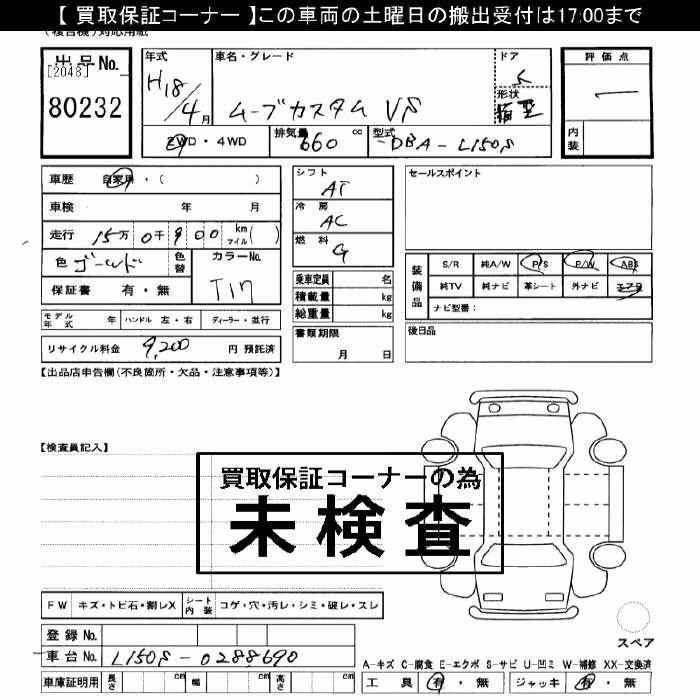 【 買取保証コーナー 】この車両の土曜日の搬出受付は17:00まで
(複合機)対応用紙
出品No. 年式 車名・グレード ドア 評価点
[2048] 5
80232 H18/4月 ムーブカスタム VS 形状 箱型
2WD・4WD 排気量 660 cc 型式 DBA-L150S 内装
車歴 自家用・( ) シフト AT セールスポイント
車検 年 月 冷房 AC
走行 15万0千900 km マイル( ) 燃料 G
色 ゴールド 色替 カラーNo. T17
装備品 S/R 純A/W P/S P/W ABS
保証書 有・無 乗車定員 名 純TV 純ナビ 革シート 外ナビ エアB
積載量 kg ナビ型番:
モデル年式 年 ハンドル 左・右 ディーラー・並行 総重量 kg
リサイクル料金 9,200 円 預託済 書類期限 月 日 後日品
【出品店申告欄(不良箇所・欠品・注意事項等)】
【検査員記入】
買取保証コーナーの為
未検査
FW キズ・トビ石・割レX シート内装 コゲ・穴・汚レ・シミ・破レ・スレ
スペア
登録No.
車台No. L150S-0288690
A-キズ C-腐食 E-エクボ S-サビ U-凹ミ W-補修 XX-交換済
車庫証明用 長さ cm 幅 cm 高さ cm 工具 有・無 ジャッキ 有・無